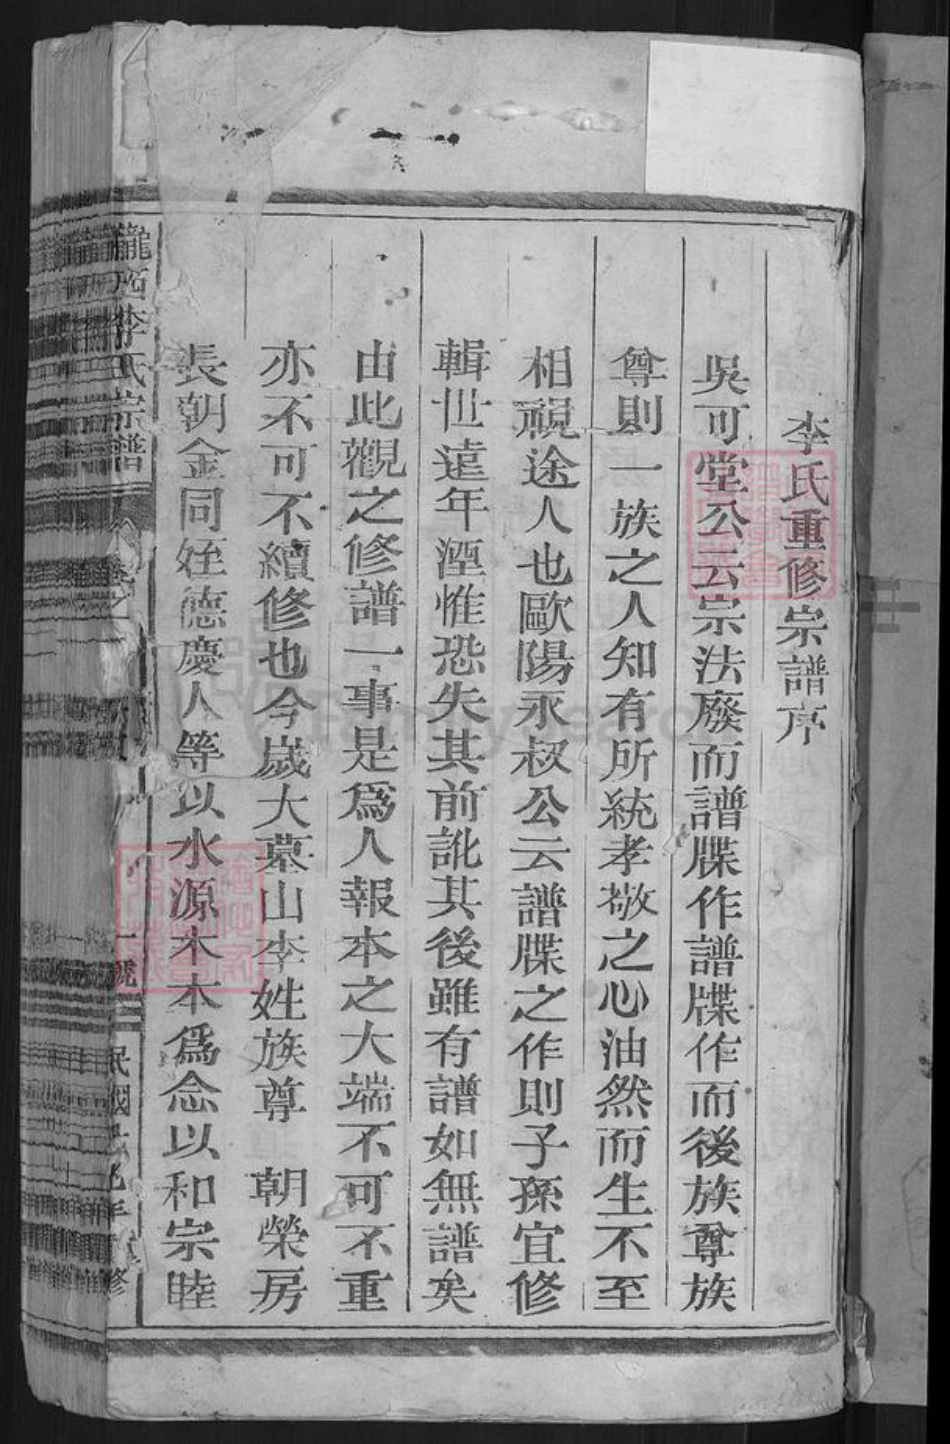 李氏重修宗譜序
吳可堂公云宗法廢而譜牒作譜牒作而後族尊族
尊則一族之人知有所統孝敬之心油然而生不至
相視途人也歐陽永叔公云譜牒之作則子孫宜修
輯世遠年湮惟恐失其前訛其後雖有譜如無譜矣
由此觀之修譜一事是為人報本之大端不可不重
亦不可不續修也今歲大墓山李姓族尊 朝榮房
長朝金同姪德慶人等以水源木本為念以和宗睦
隴西李氏宗譜 卷之 一號 民國 年 修
FamilySearch